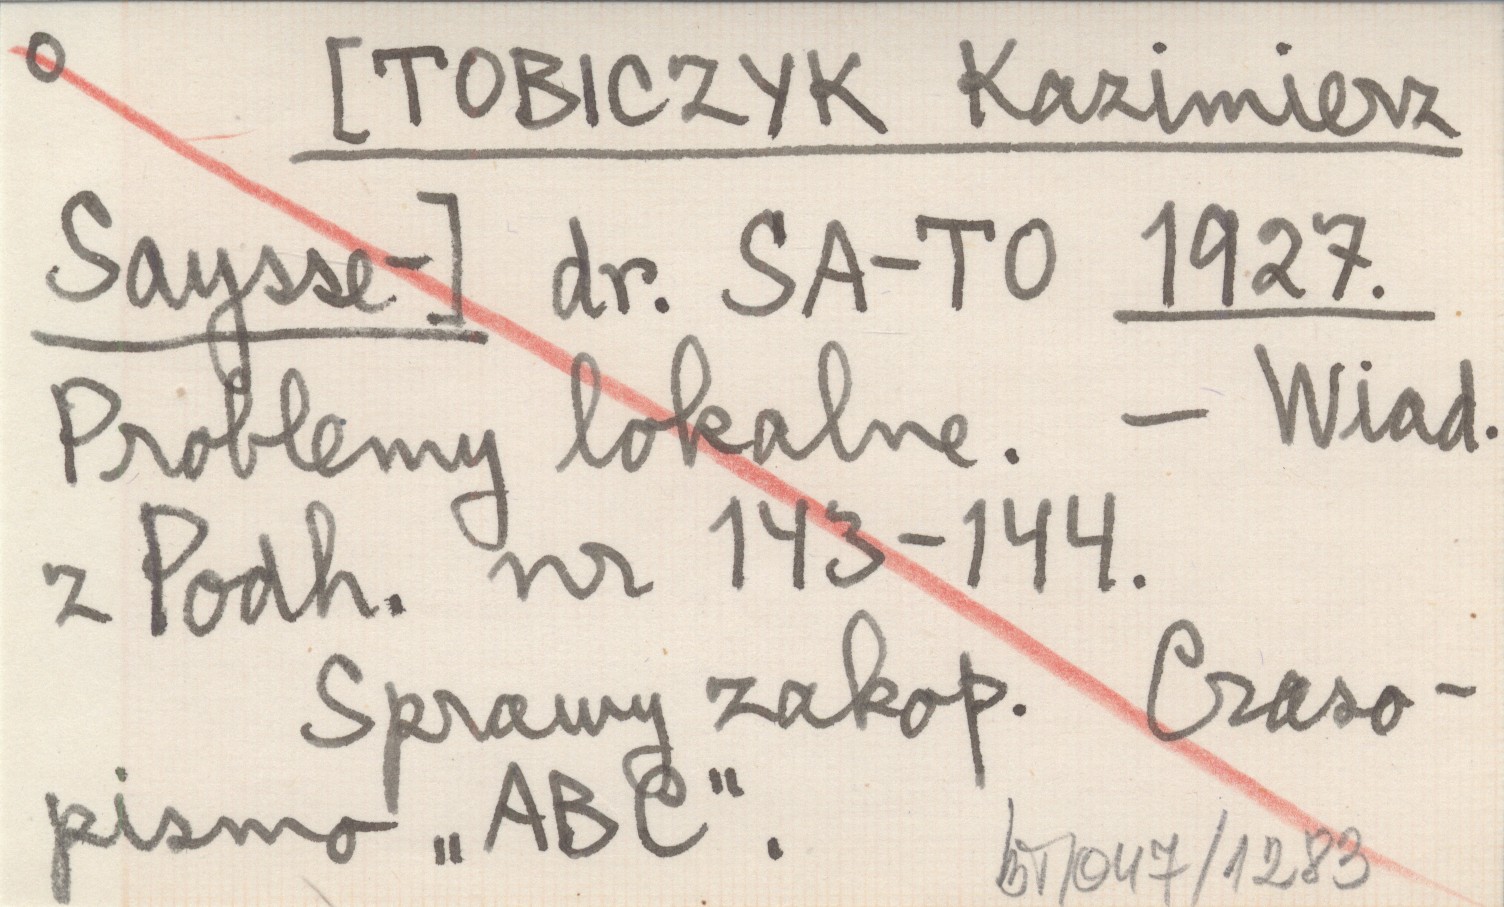 o [TOBICZYK Kazimierz
Saysse-] dr. SA-TO 1927.
Problemy lokalne. — Wiad.
z Podh. nr 143-144.
Sprawy zakop. Czaso-
pismo „ABC".
bT/047/1283